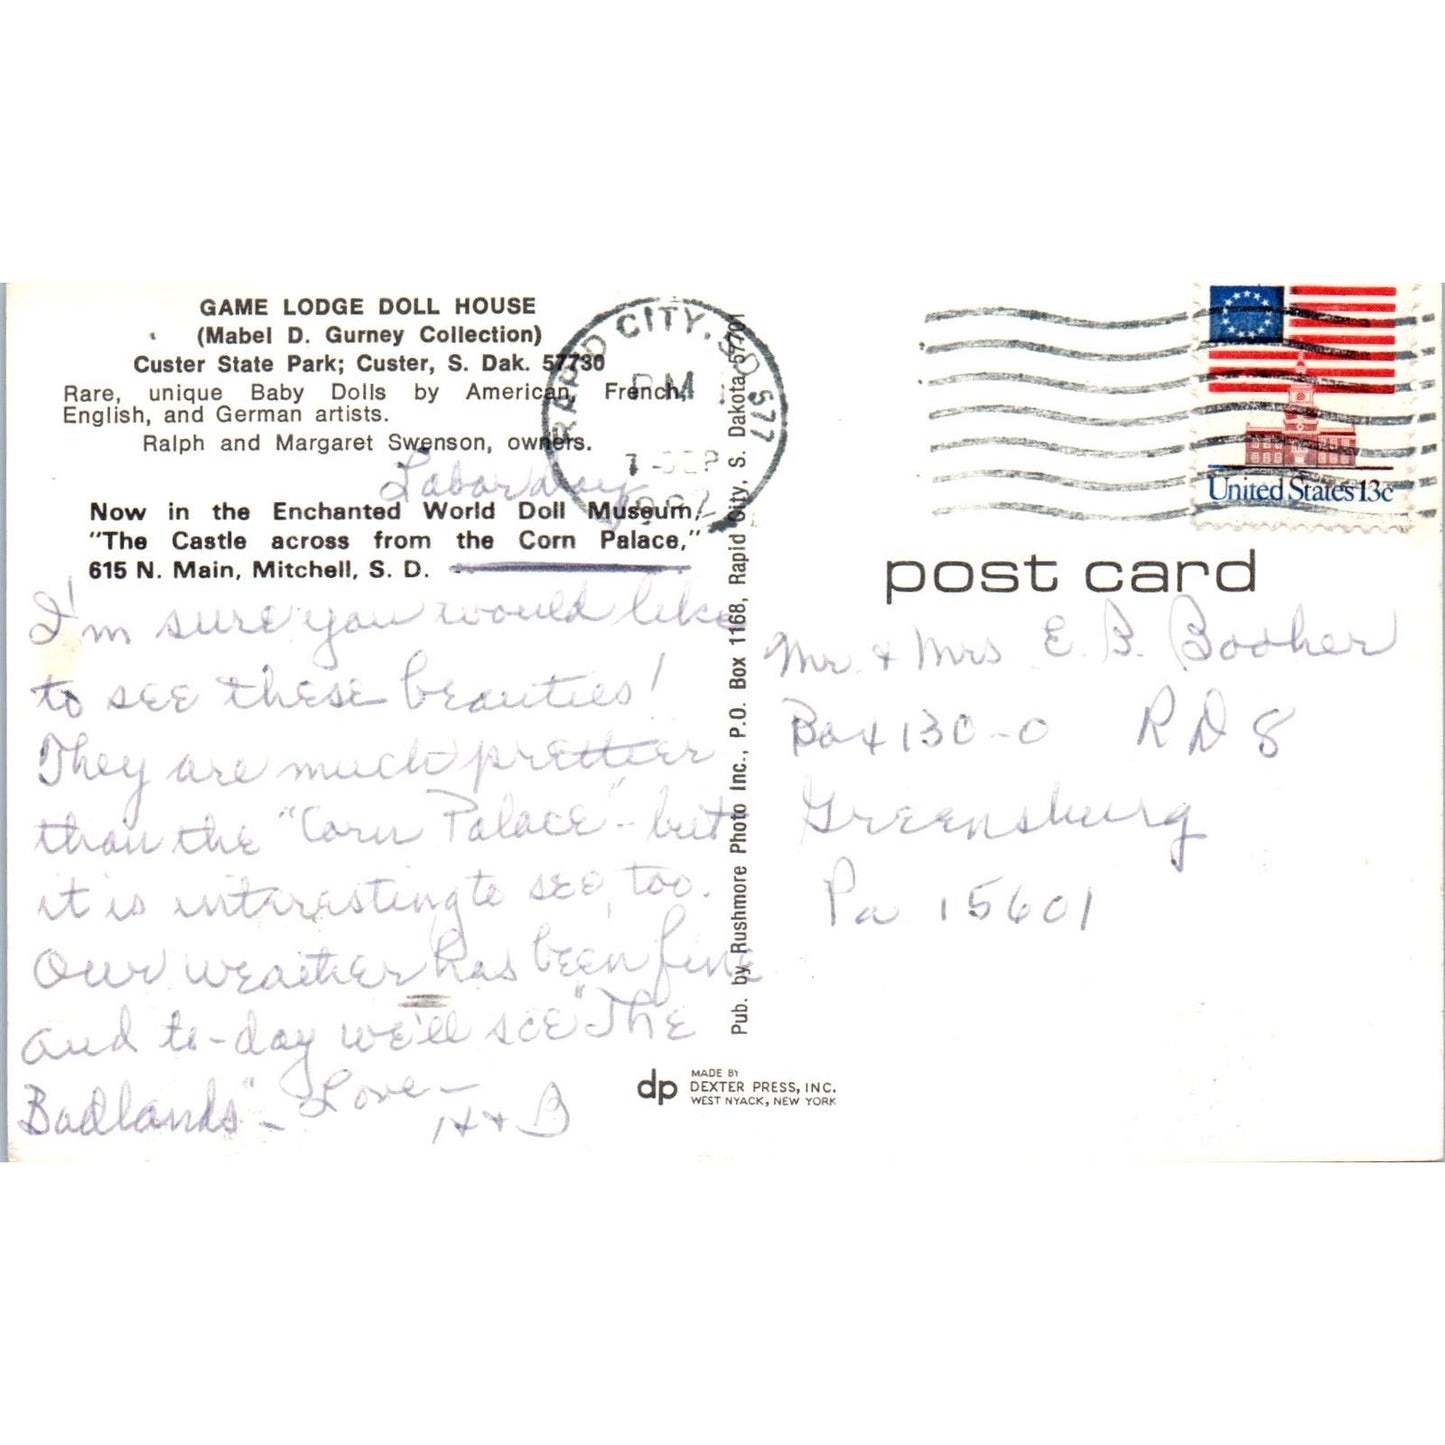 GAME LODGE DOLL HOUSE
(Mabel D. Gurney Collection)
Custer State Park; Custer, S. Dak. 57730
Rare, unique Baby Dolls by American, French,
English, and German artists.
Ralph and Margaret Swenson, owners.
Labor day
Now in the Enchanted World Doll Museum,
"The Castle across from the Corn Palace,"
615 N. Main, Mitchell, S. D.
I'm sure you would like
to see these beauties!
They are much prettier
than the "Corn Palace" - but
it is interesting to see, too.
Our weather has been fine
and to-day we'll see "The
Badlands" - Love -
H + B
RAPID CITY, SD 577
PM
7 SEP
Pub. by Rushmore Photo Inc., P.O. Box 1168, Rapid City, S. Dakota 57701
dp
MADE BY
DEXTER PRESS, INC.
WEST NYACK, NEW YORK
United States 13c
post card
Mr. & Mrs E. B. Booher
Box 130-0 RD 8
Greensburg
Pa 15601